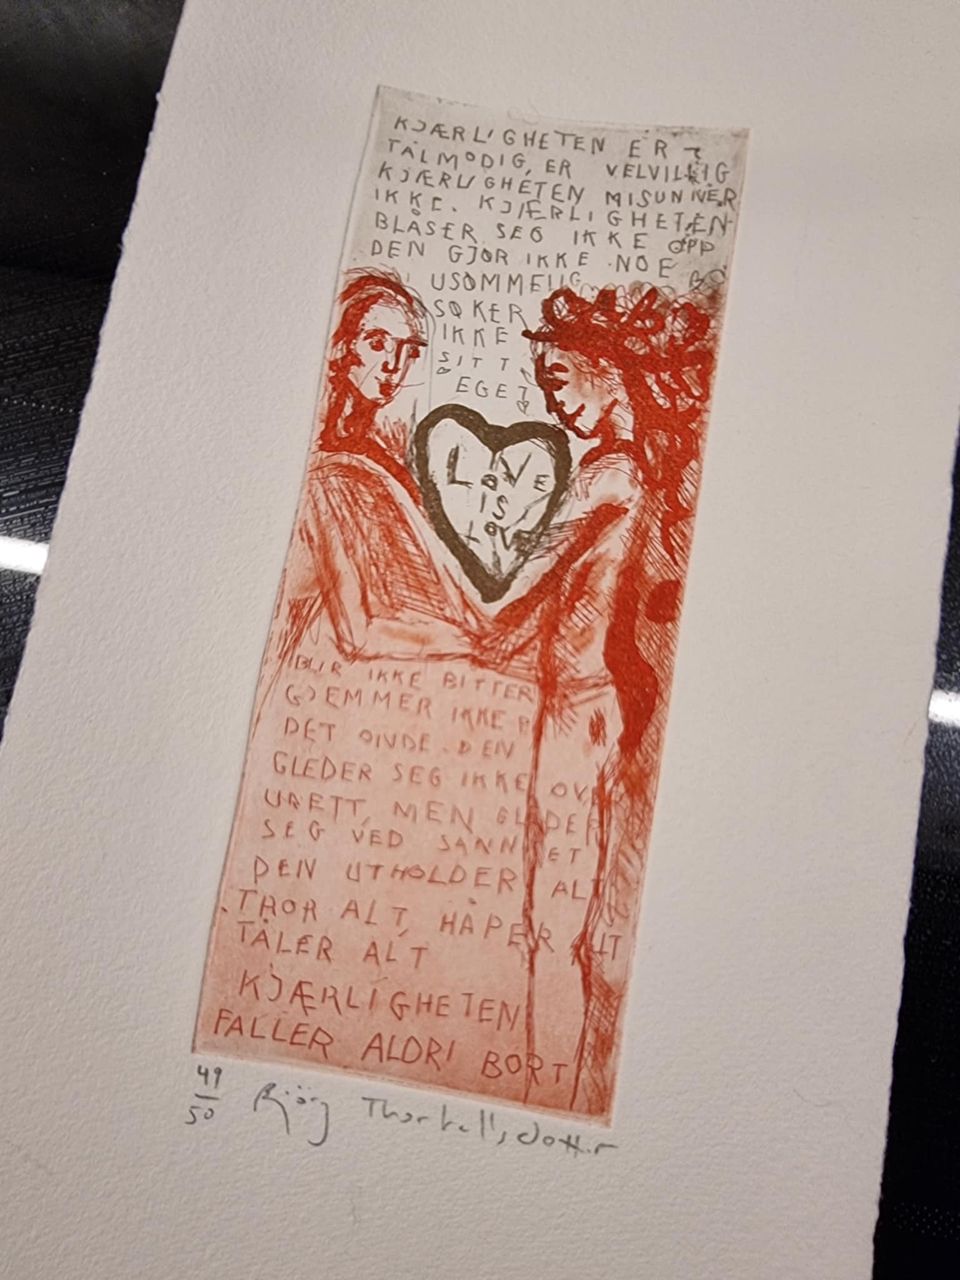 KJÆRLIGHETEN ER
TÅLMODIG, ER VELVILLIG
KJÆRLIGHETEN MISUNNER
IKKE. KJÆRLIGHETEN
BLÅSER SEG IKKE OPP
DEN GJØR IKKE NOE
USØMMELIG
SØKER
IKKE
SITT
EGET
LOVE
IS
LOVE
BLIR IKKE BITTER
GJEMMER IKKE P
DET OINDE. DEN
GLEDER SEG IKKE OVE
URETT, MEN GLEDER
SEG VED SANNHET
DEN UTHOLDER ALT
TROR ALT, HÅPER ALT
TÅLER ALT
KJÆRLIGHETEN
FALLER ALDRI BORT
49/50 Björg Thorhallsdottir